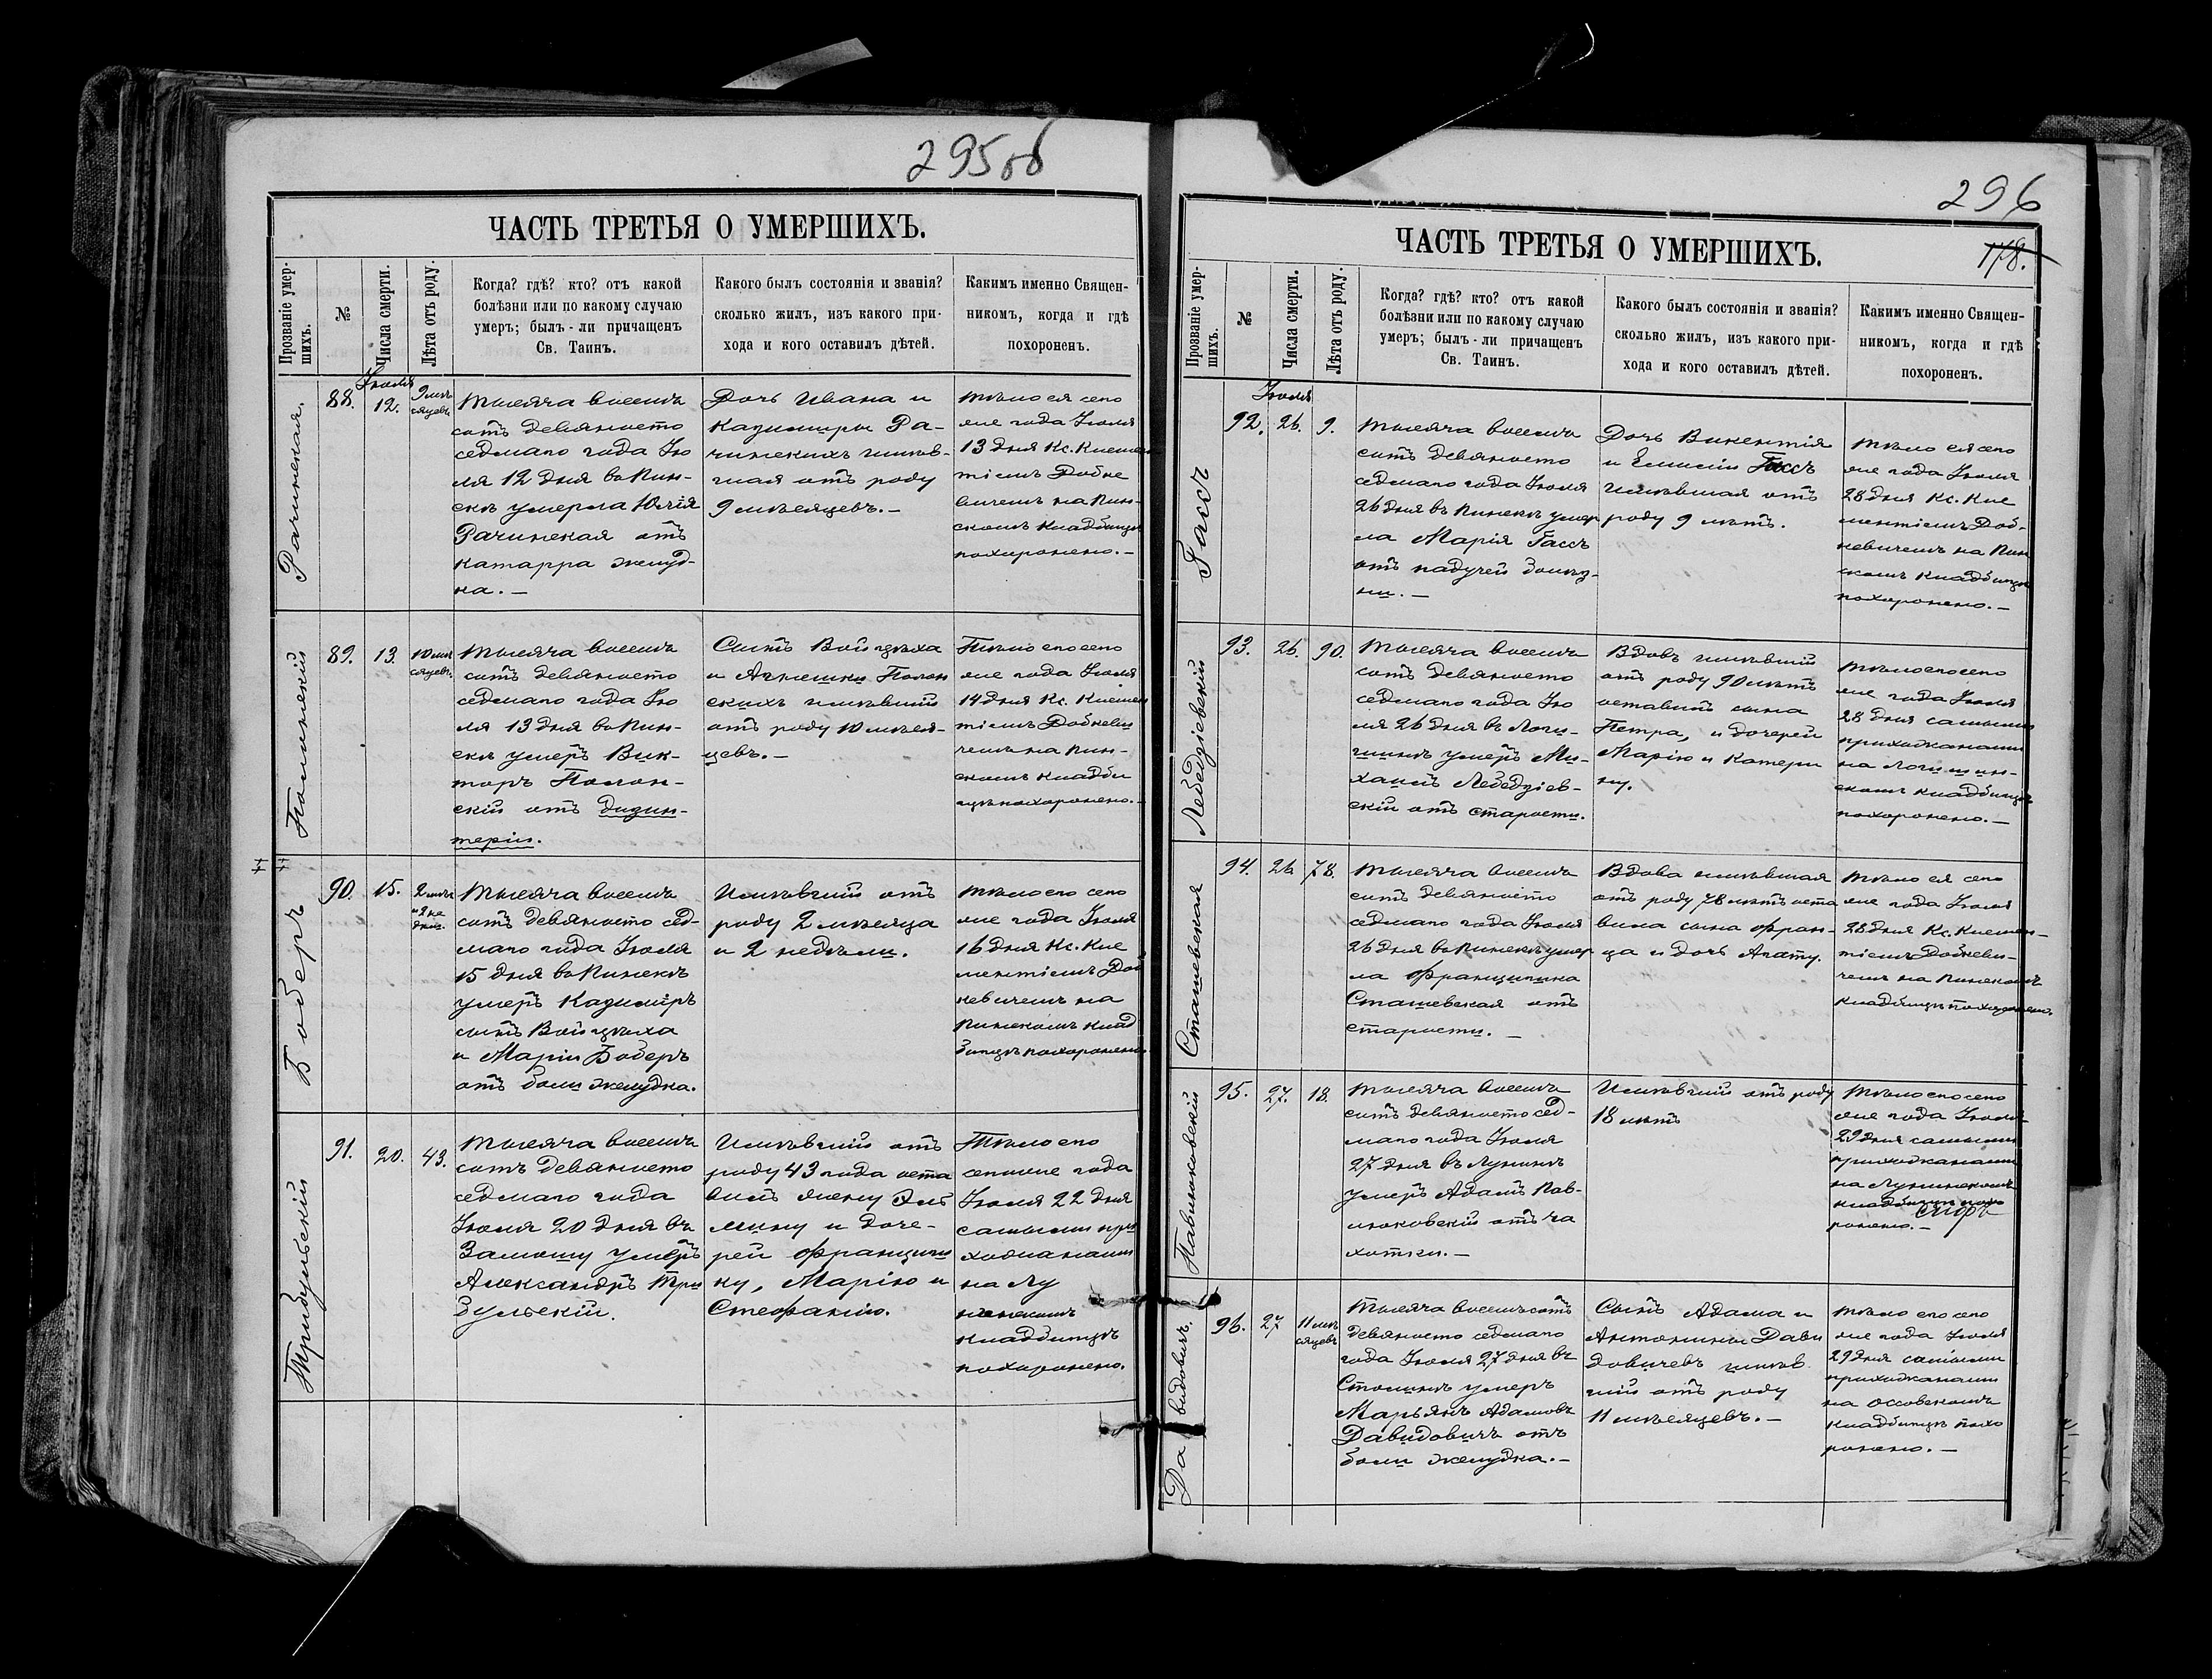 295об
ЧАСТЬ ТРЕТЬЯ О УМЕРШИХЪ.
Прозваніе умер-
шихъ.
№
Числа смерти.
Лѣта отъ роду.
Когда? гдѣ? кто? отъ какой
болѣзни или по какому случаю
умеръ; былъ-ли причащенъ
Св. Таинъ.
Какого былъ состоянія и званія?
сколько жилъ, изъ какого при-
хода и кого оставилъ дѣтей.
Какимъ именно Священ-
никомъ, когда и гдѣ
похороненъ.
Рачинская.
88.
Іюля
12.
9 мѣ
сяцевъ
Тысяча восемь
сотъ девяносто
седмаго года Ію
ля 12 дня въ Пин-
скѣ умерла Юлія
Рачинская отъ
катарра желуд-
ка. —
Дочь Ивана и
Казимиры Ра-
чинскихъ имѣв-
шая отъ роду
9 мѣсяцевъ. —
Тѣло ея сего
же года Іюля
13 дня Кс. Клемен
тіемъ Добке
вичемъ на Пин-
скомъ кладбищѣ
похоронено. —
Полонскій
89.
13.
10 мѣ
сяцевъ.
Тысяча восемь
сотъ девяносто
седмаго года Ію
ля 13 дня въ Пин-
скѣ умеръ Вик-
торъ Полон-
скій отъ дизин-
теріи.
Сынъ Войцѣха
и Агнешки Полон
скихъ имѣвшій
отъ роду 10 мѣся-
цевъ. —
Тѣло его сего
же года Іюля
14 дня Кс. Клемен
тіемъ Добкеви
чемъ на Пин-
скомъ кладби
щѣ похоронено. —
Боберъ
90.
15.
2 мѣс
и 2 не
дѣли.
Тысяча восемь
сотъ девяносто сед-
маго года Іюля
15 дня въ Пинскѣ
умеръ Казимиръ
сынъ Войцѣха
и Маріи Боберъ
отъ боли желудка.
Имѣвшій отъ
роду 2 мѣсяца
и 2 недѣли.
Тѣло его сего
же года Іюля
16 дня Кс. Кле
ментіемъ Доб
кевичемъ на
Пинскомъ клад
бищѣ похоронено
Трибульскій
91.
20.
43.
Тысяча восемь
сотъ девяносто
седмаго года
Іюля 20 дня въ
Замошу умеръ
Александръ Три
бульскій.
Имѣвшій отъ
роду 43 года оста
вилъ жену Эмі
лину и доче-
рей Францишк
ку, Марію и
Стефанію.
Тѣло его
сегоже года
Іюля 22 дня
самыми при
хожанами
на Лу
нинскомъ
кладбищѣ
похоронено.
296
178.
ЧАСТЬ ТРЕТЬЯ О УМЕРШИХЪ.
Прозваніе умер-
шихъ.
№
Числа смерти.
Лѣта отъ роду.
Когда? гдѣ? кто? отъ какой
болѣзни или по какому случаю
умеръ; былъ-ли причащенъ
Св. Таинъ.
Какого былъ состоянія и званія?
сколько жилъ, изъ какого при-
хода и кого оставилъ дѣтей.
Какимъ именно Священ-
никомъ, когда и гдѣ
похороненъ.
Гассъ
92.
Іюля
26.
9.
Тысяча восемь
сотъ девяносто
седмаго года Іюля
26 дня въ Пинскѣ умер
ла Марія Гассъ
отъ падучей болѣз-
ни. —
Дочь Викентія
и Емиліи Гассъ
имѣвшая отъ
роду 9 лѣтъ.
Тѣло ея сего
же года Іюля
28 дня Кс. Кле
ментіемъ Доб-
кевичемъ на Пин
скомъ кладбищѣ
похоронено. —
Лебедзіевскій
93.
26.
90.
Тысяча восемь
сотъ девяносто
седмаго года Ію
ля 26 дня въ Логи-
шинѣ умеръ Ми-
хаилъ Лебедзіев-
скій отъ старости.
Вдовъ имѣвшій
отъ роду 90 лѣтъ
оставилъ сына
Петра, и дочерей
Марію и Катери
ну.
Тѣло его сего
же года Іюля
28 дня самыми
прихожанами
на Логишин-
скомъ кладбищѣ
похоронено. —
Сташевская
94.
26
78.
Тысяча восемь
сотъ девяносто
седмаго года Іюля
26 дня въ Пинскѣ умер
ла Францишка
Сташевская отъ
старости. —
Вдова имѣвшая
отъ роду 78 лѣтъ оста
вила сына Фран-
ца и дочь Агату.
Тѣло ея сего
же года Іюля
28 дня Кс. Клемен-
тіемъ Добкеви-
чемъ на Пинскомъ
кладбищѣ похоронено.
Павлюковскій
95.
27.
18.
Тысяча восемь
сотъ девяносто сед-
маго года Іюля
27 дня въ Лунинѣ
умеръ Адамъ Пав-
люковскій отъ ча
хотки. —
Имѣвшій отъ роду
18 лѣтъ
Тѣло его сего
же года Іюля
29 дня самыми
прихожанами
на Лунинскомъ
кладбищѣ похо
ронено. —
Давидовичъ.
96.
27
11 мѣ
сяцевъ
Тысяча восемьсотъ
девяносто седмаго
года Іюля 27 дня въ
Столинѣ умеръ
Марьянъ Адамовъ
Давидовичъ отъ
боли желудка. —
Сынъ Адама и
Антонины Дави
довичевъ имѣв
шій отъ роду
11 мѣсяцевъ. —
Тѣло его сего
же года Іюля
29 дня самыми
прихожанами
на Оссовскомъ
кладбищѣ похо
ронено. —